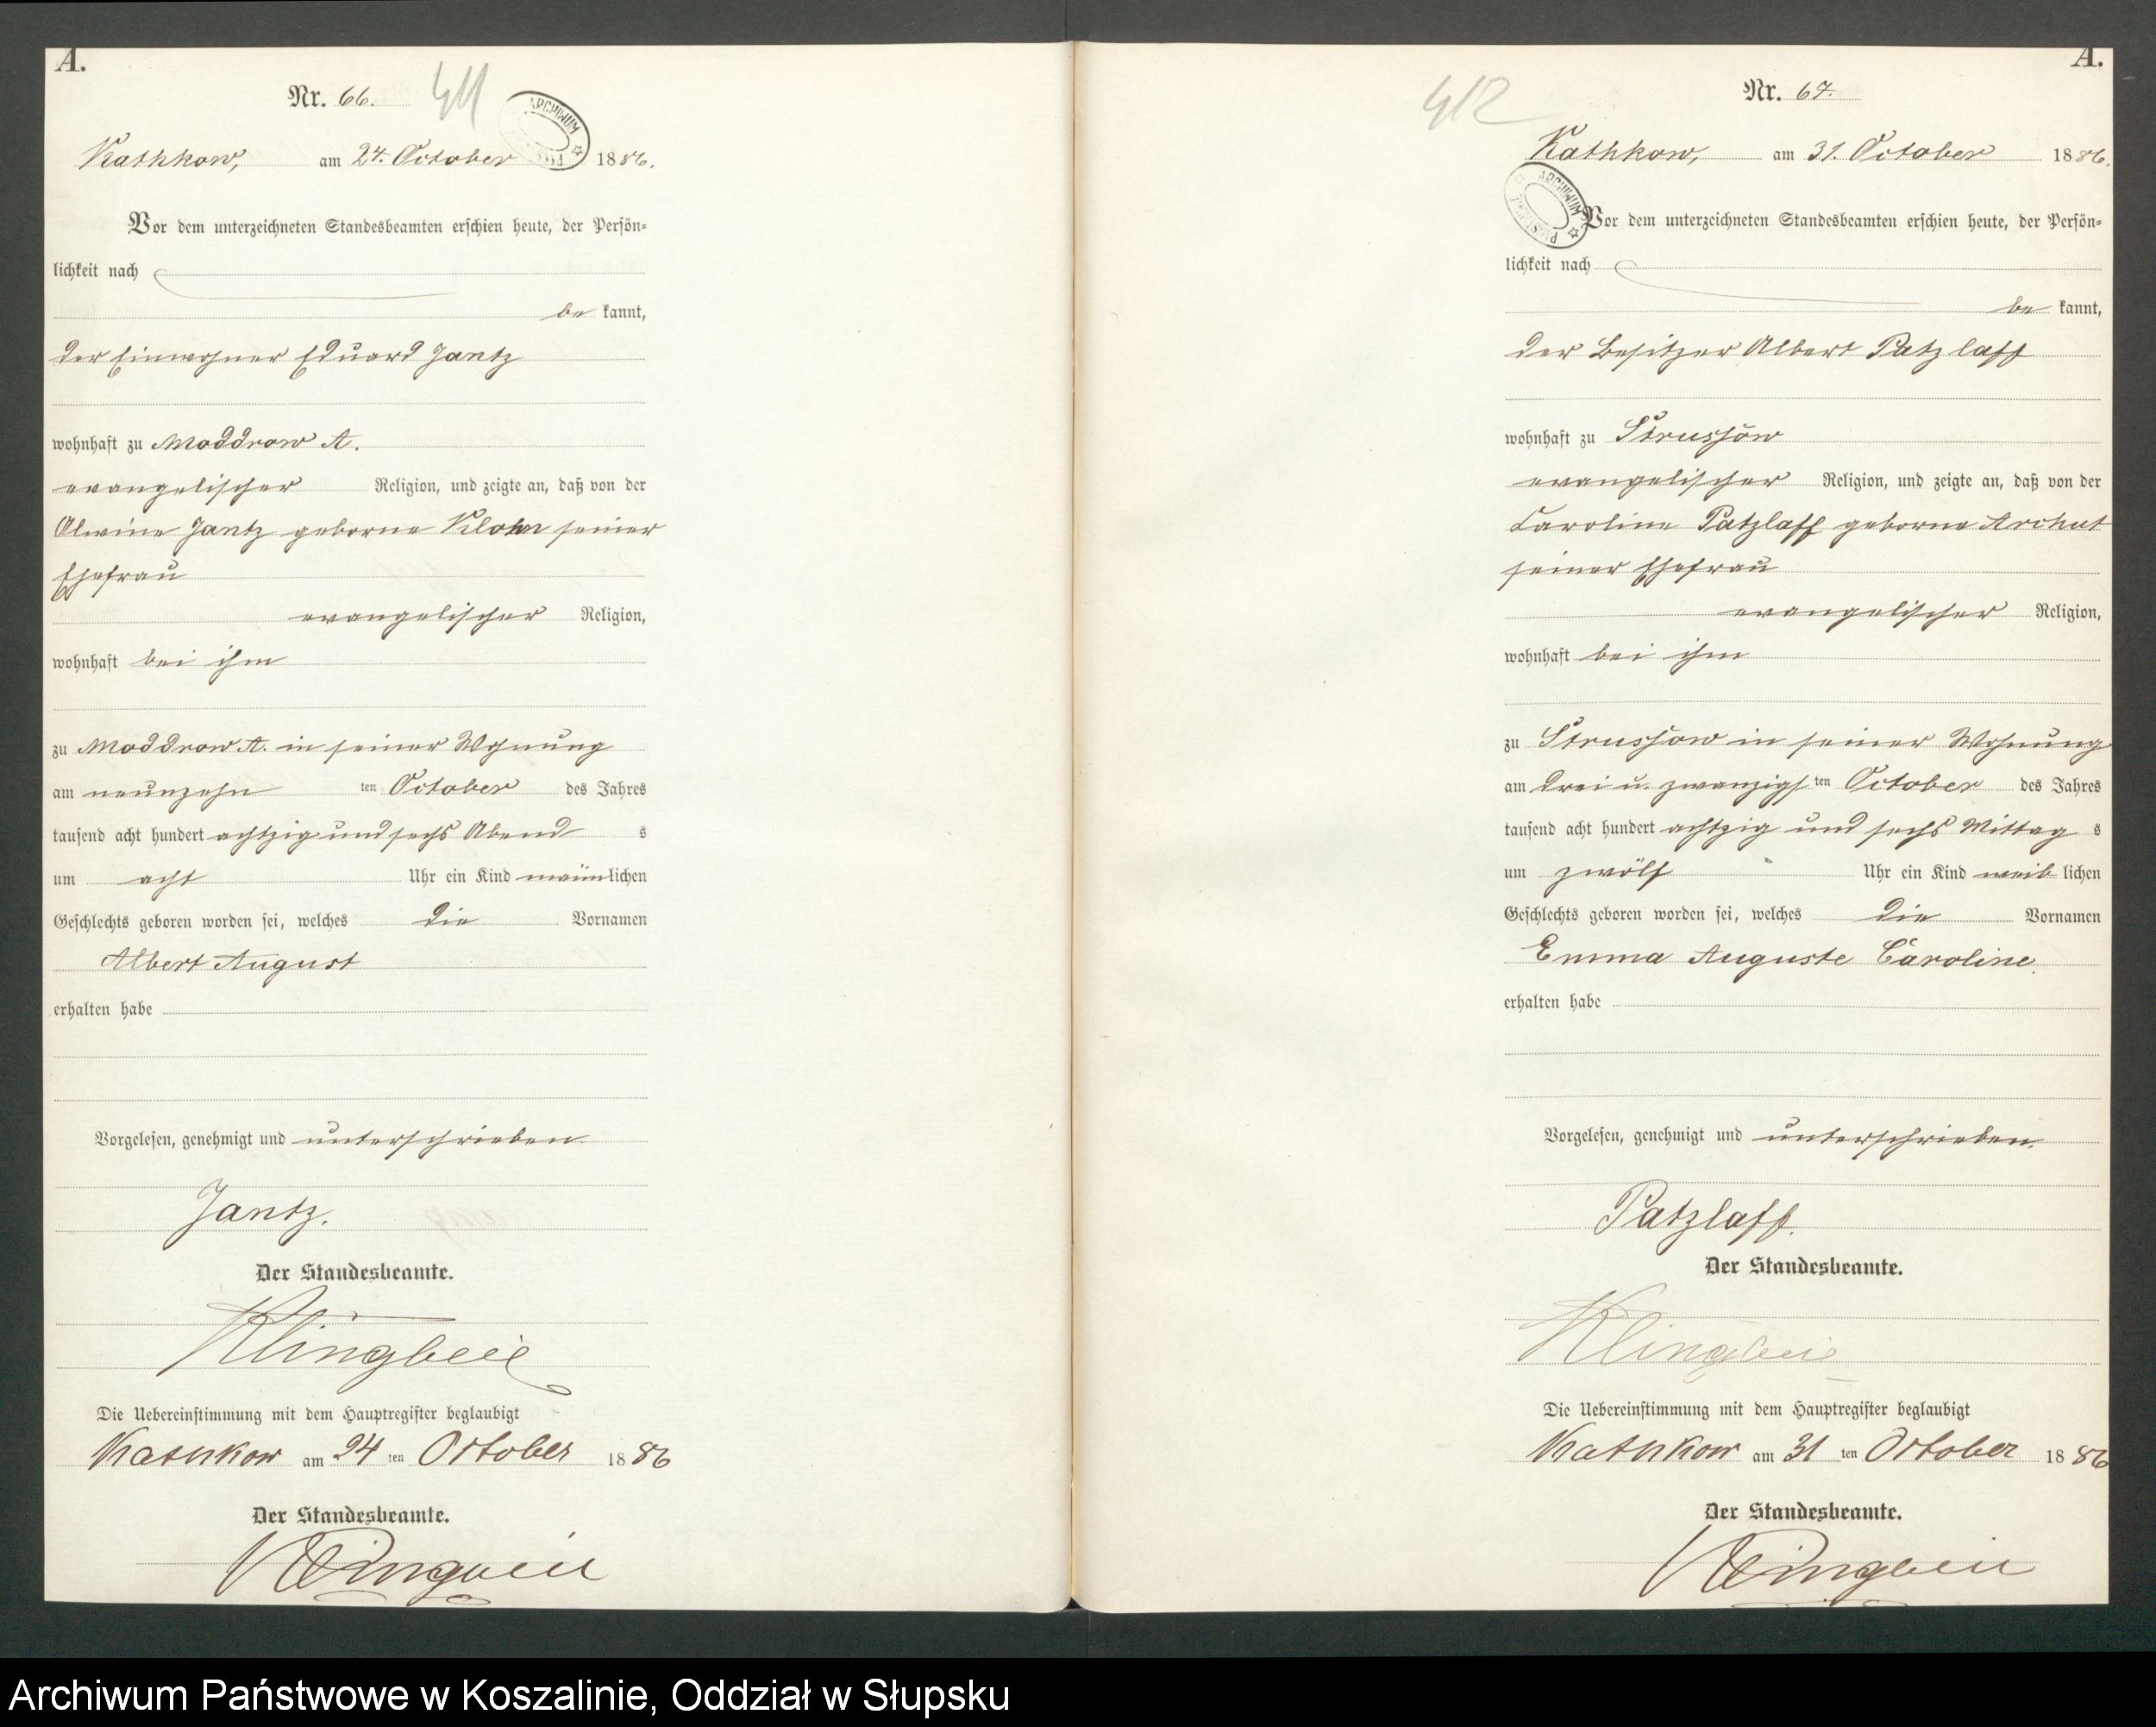 A.
Nr. 66.
411
ARCHIWUM
Kathkow, am 24. October 1886.
Vor dem unterzeichneten Standesbeamten erschien heute, der Persön-
lichkeit nach
be kannt,
der Einwohner Eduard Jantz
wohnhaft zu Moddrow A.
evangelischer Religion, und zeigte an, daß von der
Alwine Jantz geborne Klohn seiner
Ehefrau
evangelischer Religion,
wohnhaft bei ihm
zu Moddrow A. in seiner Wohnung
am neunzehn ten October des Jahres
tausend acht hundert achtzig und sechs Abend s
um acht Uhr ein Kind männlichen
Geschlechts geboren worden sei, welches die Vornamen
Albert August
erhalten habe
Vorgelesen, genehmigt und unterschrieben
Jantz.
Der Standesbeamte.
Klingbeil
Die Uebereinstimmung mit dem Hauptregister beglaubigt
Kathkow am 24 ten October 1886
Der Standesbeamte.
Klingbeil
A.
412
Nr. 67.
Kathkow, am 31. October 1886.
ARCHIWUM
Vor dem unterzeichneten Standesbeamten erschien heute, der Persön-
lichkeit nach
be kannt,
der Besitzer Albert Patzlaff
wohnhaft zu Strussow
evangelischer Religion, und zeigte an, daß von der
Caroline Patzlaff geborne Archut
seiner Ehefrau
evangelischer Religion,
wohnhaft bei ihm
zu Strussow in seiner Wohnung
am drei u. zwanzigs ten October des Jahres
tausend acht hundert achtzig und sechs Mittag s
um zwölf Uhr ein Kind weib lichen
Geschlechts geboren worden sei, welches die Vornamen
Emma Auguste Caroline
erhalten habe
Vorgelesen, genehmigt und unterschrieben.
Patzlaff.
Der Standesbeamte.
Klingbeil
Die Uebereinstimmung mit dem Hauptregister beglaubigt
Kathkow am 31 ten October 1886
Der Standesbeamte.
Klingbeil
Archiwum Państwowe w Koszalinie, Oddział w Słupsku